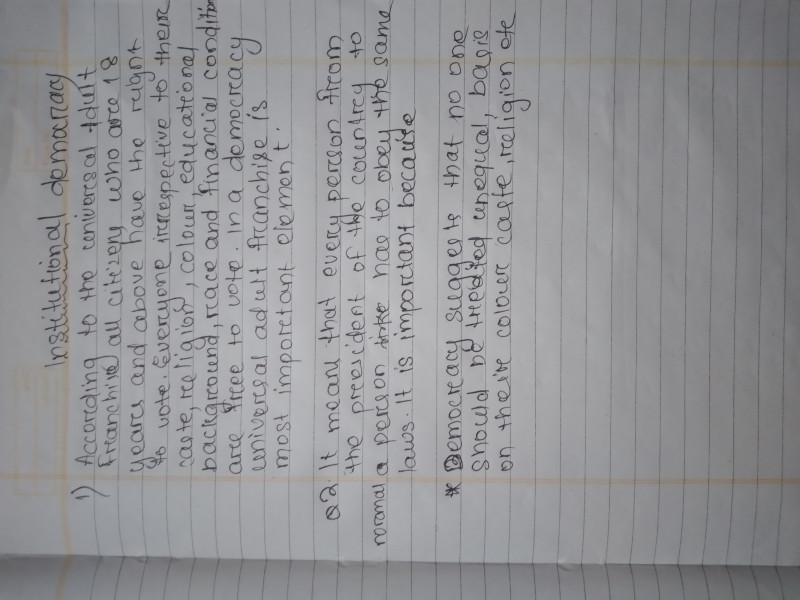 Institutional demacracy
1) According to the universal Adult
franchise all citizens who are 18
years and above have the reight
to vote. Everyone irrespective to their
caste, religion, colour, educational
background, race and financial condition
are free to vote. In a democracy
universal adult franchise is
most important element.
Q2. It means that every person from
the president of the country to
normal a person has to obey the same
laws. It is important because
* Democracy suggests that no one
should be treated unequal, basis
on their colour caste, religion etc